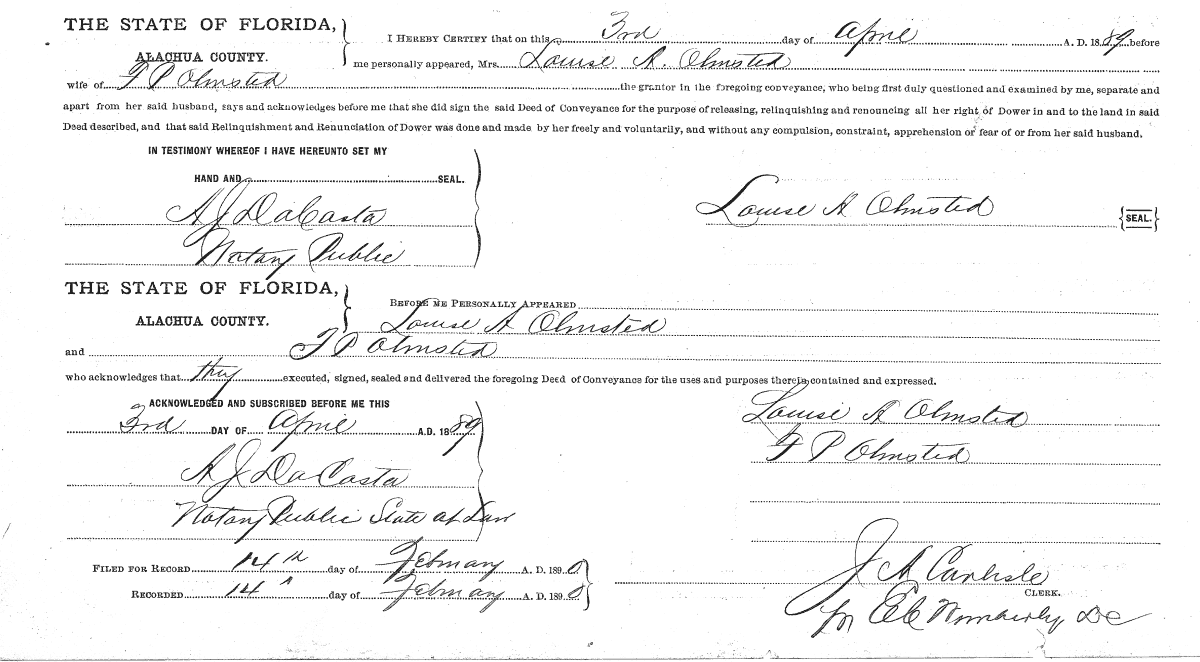 THE STATE OF FLORIDA,
ALACHUA COUNTY.
I HEREBY CERTIFY that on this 3rd day of April A. D. 1889 before
me personally appeared, Mrs. Louise A. Olmsted
wife of F P Olmsted the grantor in the foregoing conveyance, who being first duly questioned and examined by me, separate and
apart from her said husband, says and acknowledges before me that she did sign the said Deed of Conveyance for the purpose of releasing, relinquishing and renouncing all her right of Dower in and to the land in said
Deed described, and that said Relinquishment and Renunciation of Dower was done and made by her freely and voluntarily, and without any compulsion, constraint, apprehension or fear of or from her said husband.
IN TESTIMONY WHEREOF I HAVE HEREUNTO SET MY
HAND AND SEAL.
A J DaCosta
Notary Public
Louise A Olmsted {SEAL.}
THE STATE OF FLORIDA,
ALACHUA COUNTY.
BEFORE ME PERSONALLY APPEARED
Louise A Olmsted
and F P Olmsted
who acknowledges that they executed, signed, sealed and delivered the foregoing Deed of Conveyance for the uses and purposes therein contained and expressed.
ACKNOWLEDGED AND SUBSCRIBED BEFORE ME THIS
3rd DAY OF April A.D. 1889
A J DaCosta
Notary Public State at Law
Louise A Olmsted
F P Olmsted
FILED FOR RECORD 14th day of February A. D. 1890
RECORDED 14 day of February A. D. 1890
J A Carlisle
CLERK.
Wimberly DC